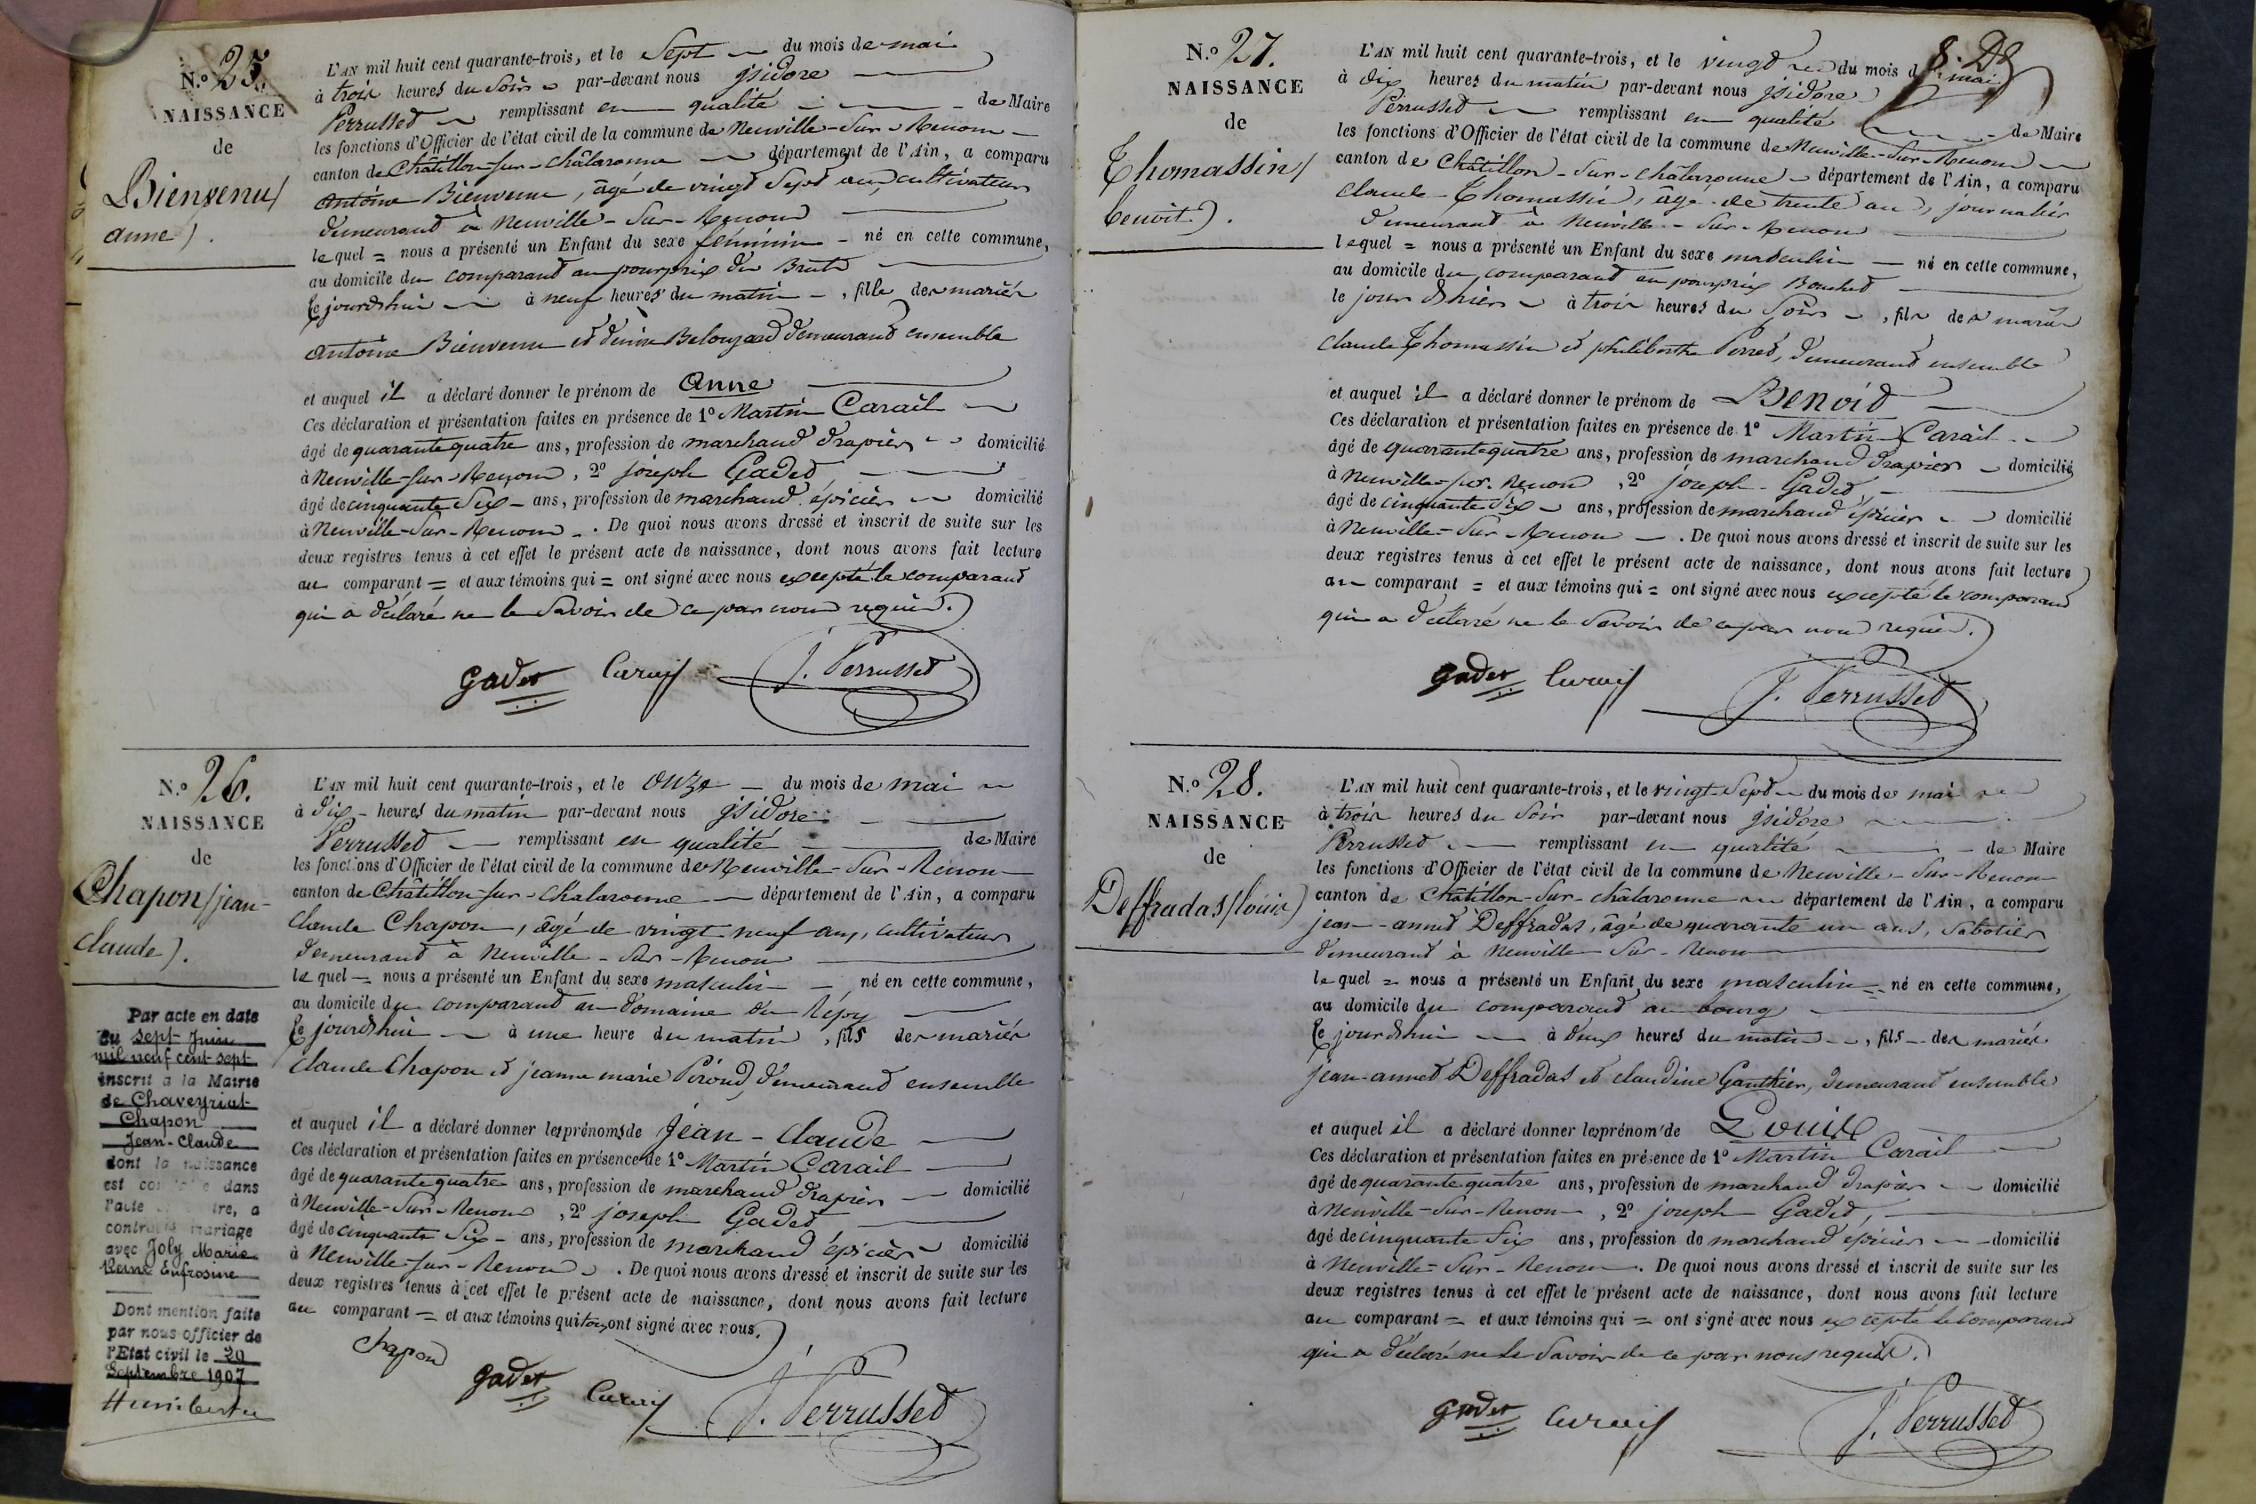 N.o 25.
NAISSANCE
de
Bienvenu
anne).
L'AN mil huit cent quarante-trois, et le sept du mois de mai
à trois heures du soir par-devant nous jsidore
Perrusset remplissant en qualité de Maire
les fonctions d'Officier de l'état civil de la commune de Neuville-sur-Renom
canton de Châtillon-sur-châlaronne département de l'Ain, a comparu
antoine Bienvenu, âgé de vingt sept ans cultivateur
demeurant à Neuville-sur-Renom
lequel = nous a présenté un Enfant du sexe féminin né en cette commune,
au domicile du comparant au pourprix du
le jourdhui à neuf heures du matin, fille des mariés
antoine Bienvenu et demeurant ensemble
et auquel il a déclaré donner le prénom de Anne
Ces déclaration et présentation faites en présence de 1o Martin Carail
âgé de quarante quatre ans, profession de marchand drapier domicilié
à Neuville-sur-Renom, 2o joseph Gadet
âgé de cinquante six ans, profession de marchand épicier domicilié
à Neuville-sur-Renom. De quoi nous avons dressé et inscrit de suite sur les
deux registres tenus à cet effet le présent acte de naissance, dont nous avons fait lecture
au comparant = et aux témoins qui = ont signé avec nous excepté le comparant
qui a déclaré ne le savoir de ce par nous requis.
Gadet Carail J. Perrusset
N.o 26.
NAISSANCE
de
Chapon (jean-
claude).
Par acte en date
du sept Juin
mil neuf cent sept
inscrit à la Mairie
de Chaveyriat
Chapon
Jean-Claude
dont la naissance
est dans
l'acte a
contracté mariage
avec Joly Marie
Reine Eufrosine
Dont mention faite
par nous officier de
l'Etat civil le 20
Septembre 1907
L'AN mil huit cent quarante-trois, et le onze du mois de mai
à dix heures du matin par-devant nous jsidore
Perrusset remplissant en qualité de Maire
les fonctions d'Officier de l'état civil de la commune de Neuville-sur-Renom
canton de Châtillon-sur-châlaronne département de l'Ain, a comparu
claude Chapon, âgé de vingt neuf ans, cultivateur
demeurant à Neuville-sur-Renom
lequel = nous a présenté un Enfant du sexe masculin né en cette commune,
au domicile du comparant au domaine du
le jourdhui à une heure du matin, fils des mariés
claude Chapon et jeanne marie demeurant ensemble
et auquel il a déclaré donner les prénoms de Jean-Claude
Ces déclaration et présentation faites en présence de 1o Martin Carail
âgé de quarante quatre ans, profession de marchand drapier domicilié
à Neuville-sur-Renom, 2o joseph Gadet
âgé de cinquante six ans, profession de marchand épicier domicilié
à Neuville-sur-Renom. De quoi nous avons dressé et inscrit de suite sur les
deux registres tenus à cet effet le présent acte de naissance, dont nous avons fait lecture
au comparant = et aux témoins qui tous ont signé avec nous.
Chapon Gadet Carail J. Perrusset
N.o 27.
NAISSANCE
de
Thomassin
benoit).
L'AN mil huit cent quarante-trois, et le vingt du mois de mai
à dix heures du matin par-devant nous jsidore
Perrusset remplissant en qualité de Maire
les fonctions d'Officier de l'état civil de la commune de Neuville-sur-Renom
canton de Châtillon-sur-châlaronne département de l'Ain, a comparu
claude Thomassin, âgé de trente ans, journalier
demeurant à Neuville-sur-Renom
lequel = nous a présenté un Enfant du sexe masculin né en cette commune,
au domicile du comparant au pourprix Bouchet
le jour d'hier à trois heures du soir, fils des mariés
claude Thomassin et philiberthe Perret, demeurant ensemble
et auquel il a déclaré donner le prénom de Benoit
Ces déclaration et présentation faites en présence de 1o Martin Carail
âgé de quarante quatre ans, profession de marchand drapier domicilié
à Neuville-sur-Renom, 2o joseph Gadet
âgé de cinquante six ans, profession de marchand épicier domicilié
à Neuville-sur-Renom. De quoi nous avons dressé et inscrit de suite sur les
deux registres tenus à cet effet le présent acte de naissance, dont nous avons fait lecture
au comparant = et aux témoins qui = ont signé avec nous excepté le comparant
qui a déclaré ne le savoir de ce par nous requis.
Gadet Carail J. Perrusset
N.o 28.
NAISSANCE
de
Deffradas (louis)
L'AN mil huit cent quarante-trois, et le vingt sept du mois de mai
à trois heures du soir par-devant nous jsidore
Perrusset remplissant en qualité de Maire
les fonctions d'Officier de l'état civil de la commune de Neuville-sur-Renom
canton de Châtillon-sur-châlaronne département de l'Ain, a comparu
jean-annet Deffradas, âgé de quarante un ans, sabotier
demeurant à Neuville-sur-Renom
lequel = nous a présenté un Enfant du sexe masculin né en cette commune,
au domicile du comparant au bourg
le jourdhui à deux heures du matin, fils des mariés
jean-annet Deffradas et claudine Gauthier, demeurant ensemble
et auquel il a déclaré donner le prénom de Louis
Ces déclaration et présentation faites en présence de 1o Martin Carail
âgé de quarante quatre ans, profession de marchand drapier domicilié
à Neuville-sur-Renom, 2o joseph Gadet,
âgé de cinquante six ans, profession de marchand épicier domicilié
à Neuville-sur-Renom. De quoi nous avons dressé et inscrit de suite sur les
deux registres tenus à cet effet le présent acte de naissance, dont nous avons fait lecture
au comparant = et aux témoins qui = ont signé avec nous excepté le comparant
qui a déclaré ne le savoir de ce par nous requis.
Gadet Carail J. Perrusset